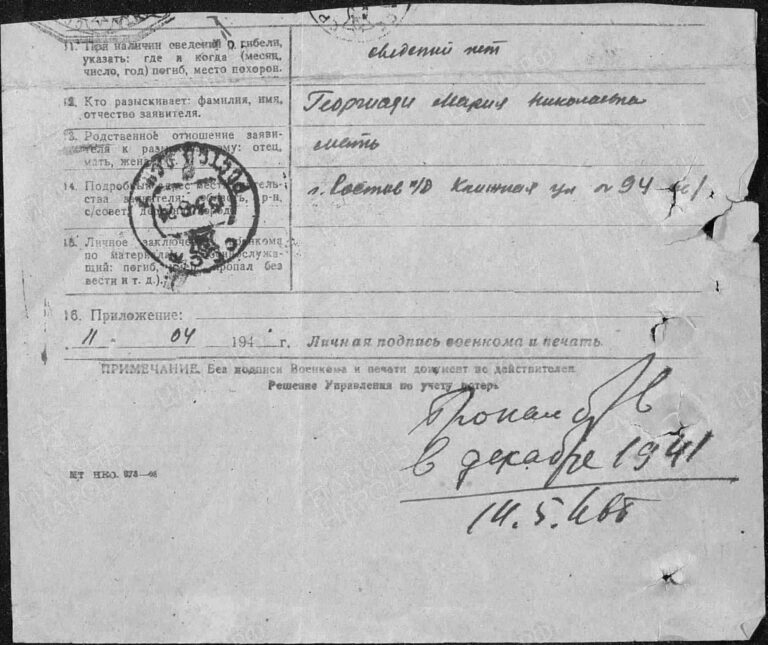 11. При наличии сведений о гибели,
указать: где и когда (месяц,
число, год) погиб, место похорон.
сведений нет
12. Кто разыскивает: фамилия, имя,
отчество заявителя.
Георгиади Мария Николаевна
13. Родственное отношение заяви-
теля к разыскиваемому: отец,
мать, жена
мать
14. Подробный адрес
ства заявителя: область, р-н,
с/совет,
г. Ростов н/Д Книжная ул № 94
15. Личное заключение военкома
по материалам
щий: погиб, пропал без
вести и т. д.).
16. Приложение:
11 - 04 194 г. Личная подпись военкома и печать.
ПРИМЕЧАНИЕ. Без подписи Военкома и печати документ не действителен
Решение Управления по учету потерь
Пропал б/в
в декабре 1941
14.5.46
МТ НКО.